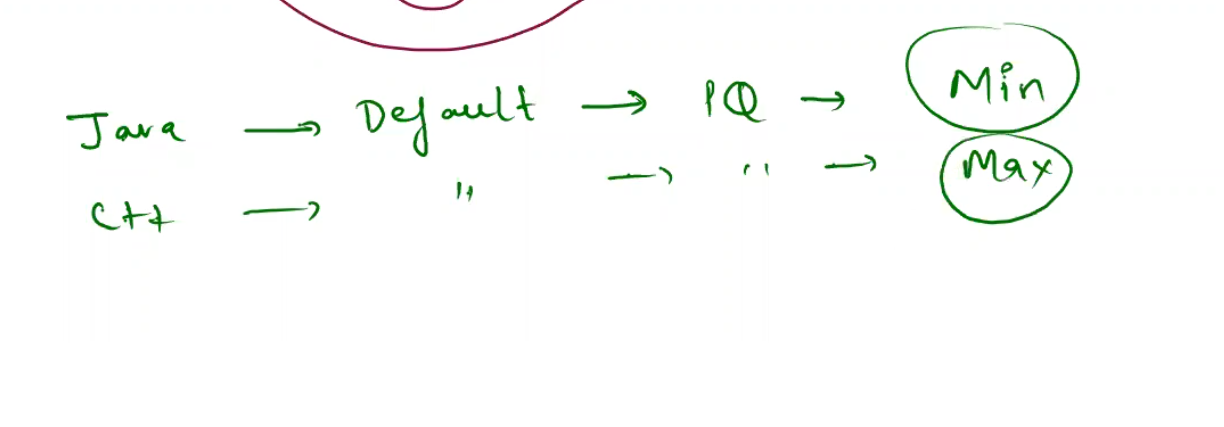 Java → Default → PQ → Min
C++ → " → " → Max